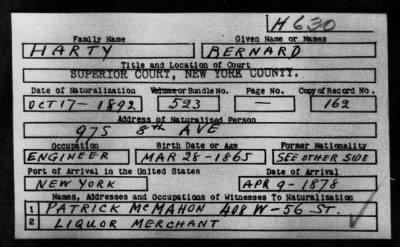 H 630
Family Name Given Name or Names
HARTY BERNARD
Title and Location of Court
SUPERIOR COURT, NEW YORK COUNTY.
Date of Naturalization Volume or Bundle No. Page No. Copy of Record No.
OCT 17 - 1892 523 — 162
Address of Naturalized Person
975 8th AVE
Occupation Birth Date or Age Former Nationality
ENGINEER MAR 28 - 1865 SEE OTHER SIDE
Port of Arrival in the United States Date of Arrival
NEW YORK APR 9 - 1878
Names, Addresses and Occupations of Witnesses To Naturalization
1 PATRICK MCMAHON 408 W - 56 - ST.
2 LIQUOR MERCHANT